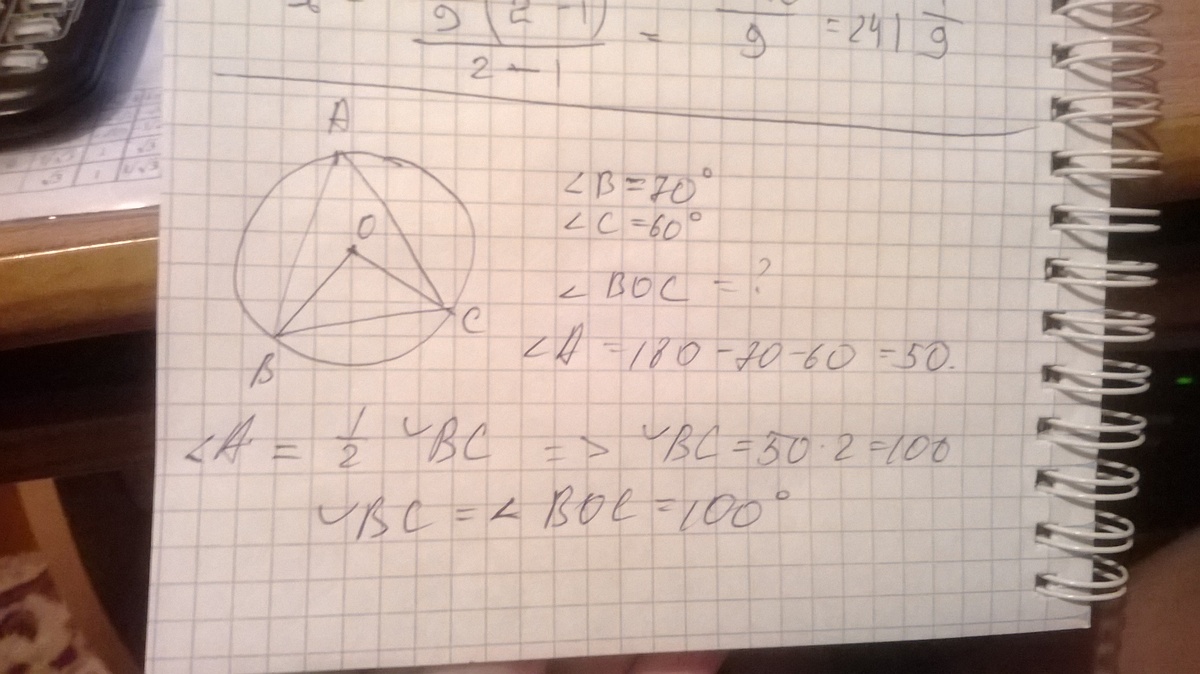 9(2-1)
2-1
=
9
=241 1/9
A
O
C
B
∠B=70°
∠C=60°
∠BOC=?
∠A=180-70-60=50.
∠A = 1/2 ◡BC => ◡BC=50·2=100
◡BC=∠BOC=100°